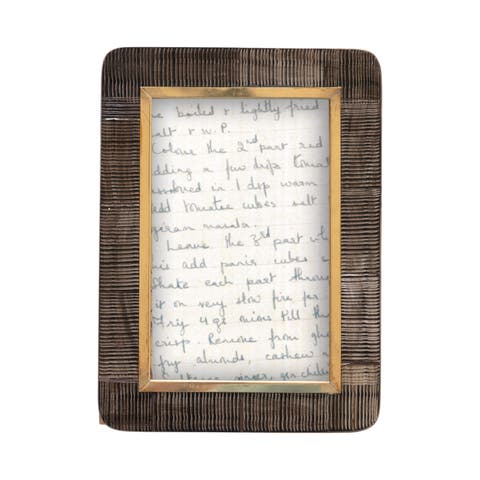 e boiled & lightly fried
alt & w.P.
Colour the 2nd part red
dding a few drops tomat
in 1 dsp warm
add tomatoe cubes salt
garam masala.
Leave the 3rd part wh
add panir cubes
Shake each part throu
it on very slow fire for
Fry 4 onions till th
crisp. Remove from ghe
fry almonds, cashew n
ginger, grn chilli